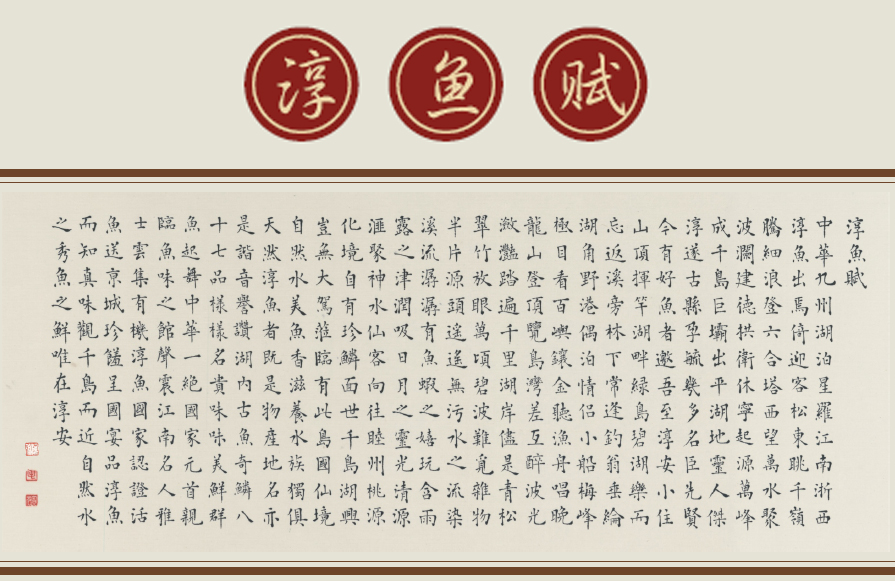 淳鱼赋
淳魚賦
中華九州湖泊星羅江南浙西
淳魚出馬倚迎客松東眺千嶺
騰細浪登六合塔西望萬水聚
波瀾建德拱衛休寧起源萬峰
成千島巨壩出平湖地靈人傑
淳遂古縣孕毓幾多名臣先賢
今有好魚者邀吾至淳安小住
山頂揮竿湖畔綠島碧湖樂而
忘返溪旁林下常逢釣翁垂綸
湖角野港偶泊情侶小船梅峰
極目看百嶼鑲金聽漁舟唱晚
龍山登頂覽島灣差互醉波光
瀲灩踏遍千里湖岸儘是青松
翠竹放眼萬頃碧波難覓雜物
半片源頭遥遥無污水之流染
溪流潺潺有魚蝦之嬉玩含雨
露之津潤吸日月之靈光清源
滙聚神水仙客向往睦州桃源
化境自有珍鱗面世千島湖興
豈無大駕蒞臨有此島國仙境
自然水美魚香滋養水族獨俱
天然淳魚者既是物産地名亦
是諧音譽讚湖內古魚奇鱗八
十七品樣樣名貴味味美鮮群
魚起舞中華一絶國家元首親
臨魚味之館聲震江南名人雅
士雲集有機淳魚國家認證活
魚送京城珍饈呈國宴品淳魚
而知真味觀千島而近自然水
之秀魚之鮮唯在淳安